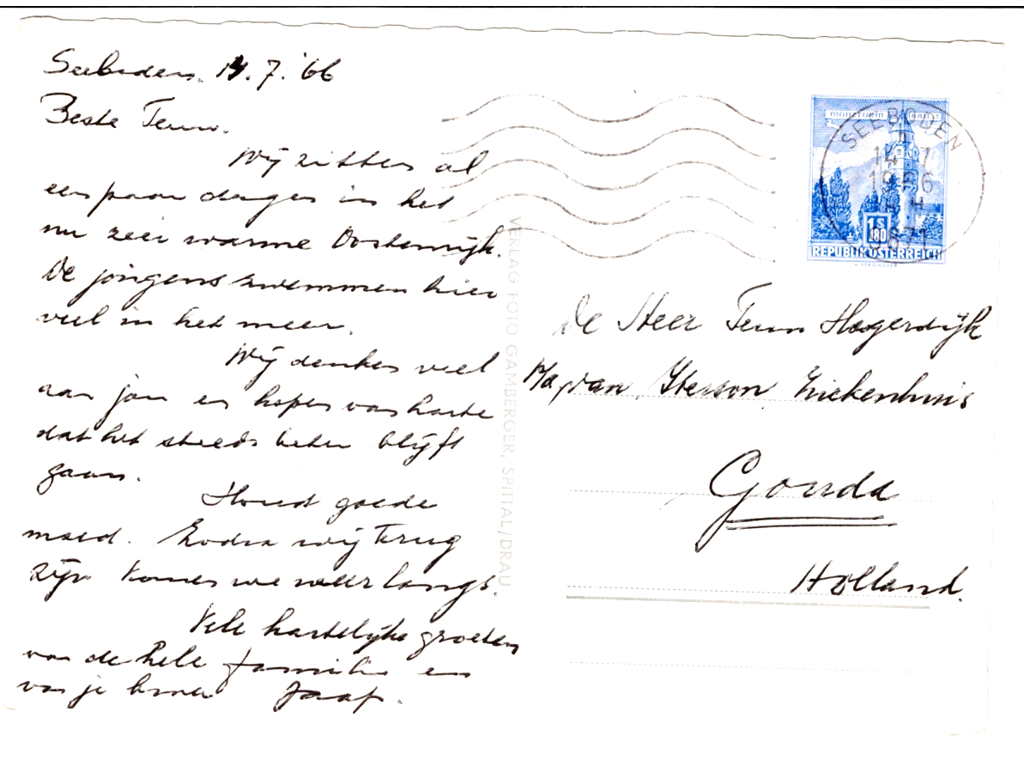 Seeboden. 14.7.'66
Beste Teun.
Wij zitten al
een paar dagen in het
nu zeer warme Oostenrijk.
De jongens zwemmen hier
veel in het meer.
Wij denken veel
aan jou en hopen van harte
dat het steeds beter blijft
gaan.
Houd goede
moed. Zodra wij terug
zijn komen we weer langs.
Vele hartelijke groeten
van de hele familie en
van je broer Jaap.
VERLAG FOTO GAMBERGER, SPITTAL/DRAU
SEEBODEN
14 7
1966
1 S
80
REPUBLIK ÖSTERREICH
De Heer Teun Hoogerdijk
p/a van Iterson Ziekenhuis
Gouda
Holland.